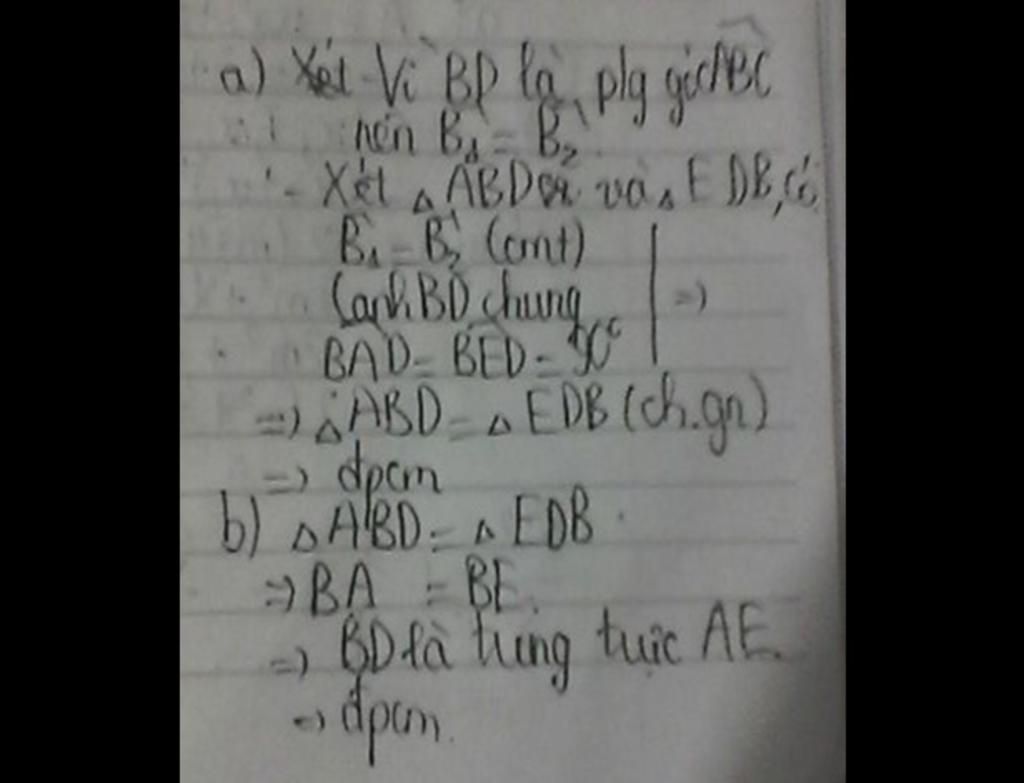 a) Xét Vì BD là p/g góc ABC
nên B₁ = B₂
- Xét △ABD và △EDB, có
B₁ = B₂ (cmt)
Cạnh BD chung
BAD = BED = 90° =>
=> △ABD = △EDB (ch.gn)
=> đpcm
b) △ABD = △EDB
=> BA = BE.
=> BD là trung trực AE.
=> đpcm.